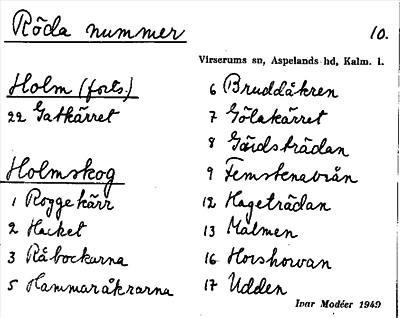 Röda nummer
10.
Virserums sn, Aspelands hd, Kalm. l.
Holm (forts.)
22 Gatkärret
Holmskog
1 Roggekärr
2 Hacket
3 Råbockarna
5 Hammaråkrarna
6 Bruddåkren
7 Gölakärret
8 Gärdsträdan
9 Femstenavrån
12 Hageträdan
13 Malmen
16 Horshorvan
17 Udden
Ivar Modéer 1949